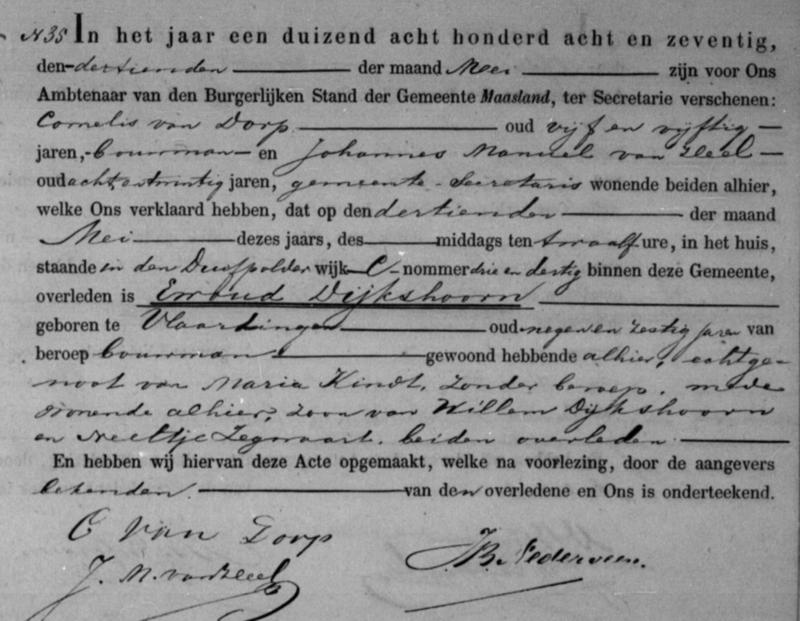 N35 In het jaar een duizend acht honderd acht en zeventig,
den dertienden der maand Mei zijn voor Ons
Ambtenaar van den Burgerlijken Stand der Gemeente Maasland, ter Secretarie verschenen:
Cornelis van Dorp oud vijf en vijftig
jaren, bouwman en Johannes Manuel van
oud acht en twintig jaren, gemeente-Secretaris wonende beiden alhier,
welke Ons verklaard hebben, dat op den dertienden der maand
Mei dezes jaars, des middags ten twaalf ure, in het huis,
staande in den Duifpolder wijk C nommer drie en dertig binnen deze Gemeente,
overleden is Dijkshoorn
geboren te Vlaardingen oud negen en zestig jaren van
beroep bouwman gewoond hebbende alhier, echtge-
noot van Maria Kindt, zonder beroep, mede
wonende alhier, zoon van Willem Dijkshoorn
en Neeltje Zegwaart, beiden overleden.
En hebben wij hiervan deze Acte opgemaakt, welke na voorlezing, door de aangevers
bekenden van den overledene en Ons is onderteekend.
C van Dorp
J. M. van